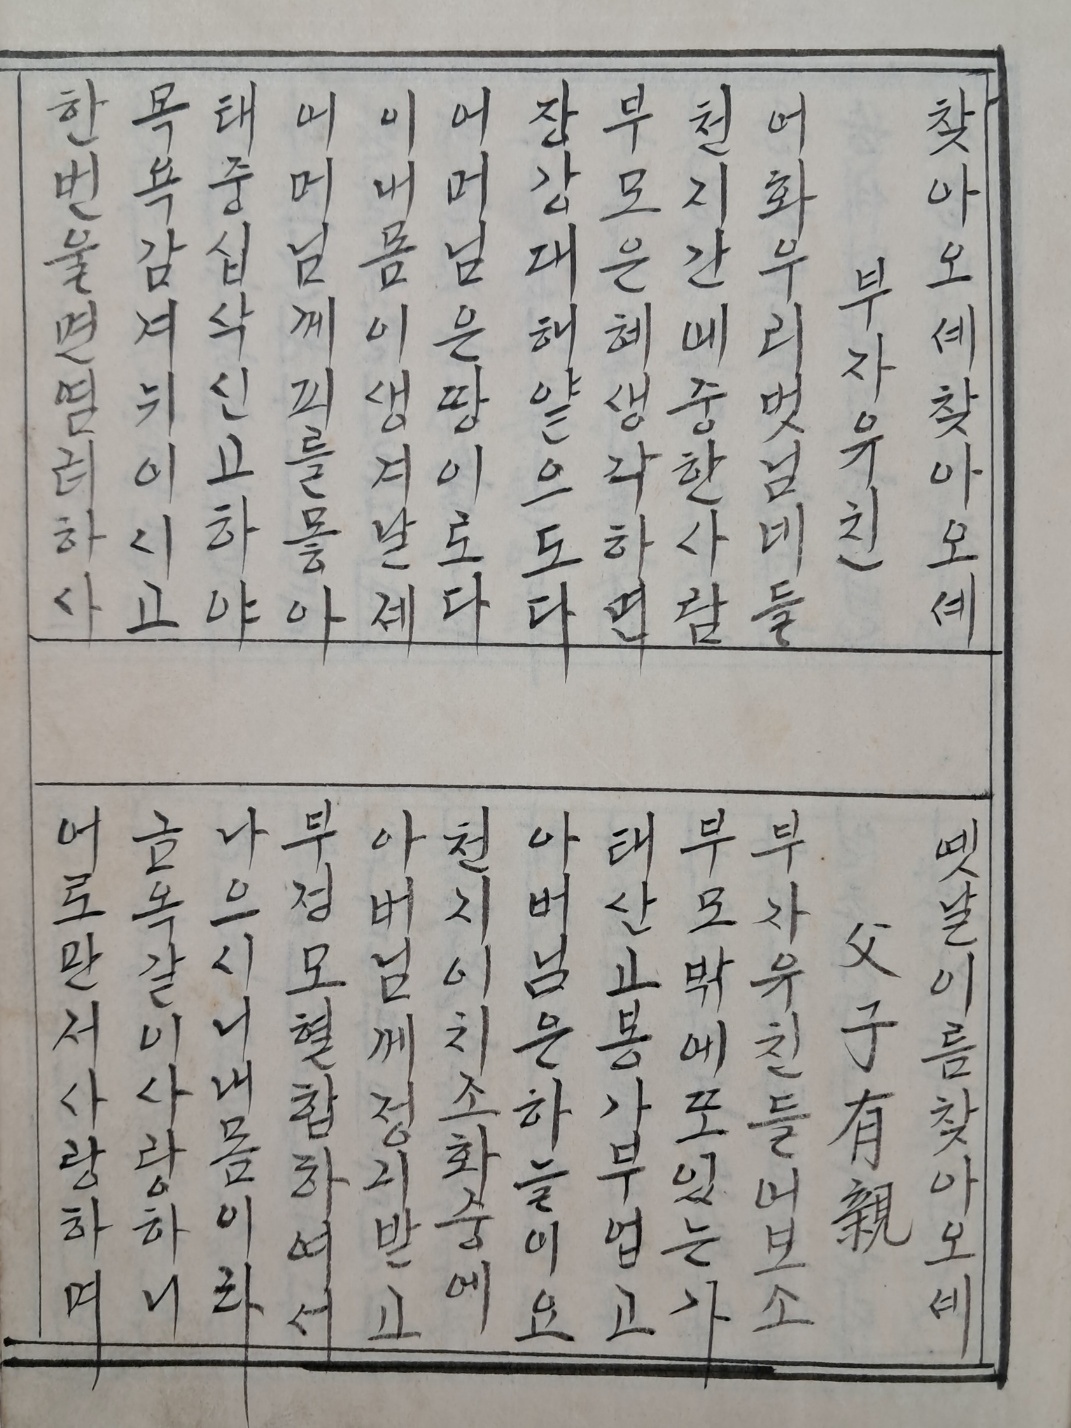 찾아오셰찾아오셰
옛날이름찾아오셰
부자유친
父子有親
어화우리벗님네들
부자유친들어보소
천지간에중한사람
부모밖에또있는가
부모은혜생각하면
태산고봉가부엽고
장강대해얕으도다
아버님은하늘이요
어머님은땅이로다
천지이치조화중에
이내몸이생겨날제
아버님께정기받고
어머님께피를뫃아
부정모혈합하여서
태중십삭신고하야
나으시니내몸이라
목욕감겨뉘이시고
금옥같이사랑하니
한번울면염려하사
어로만저사랑하며